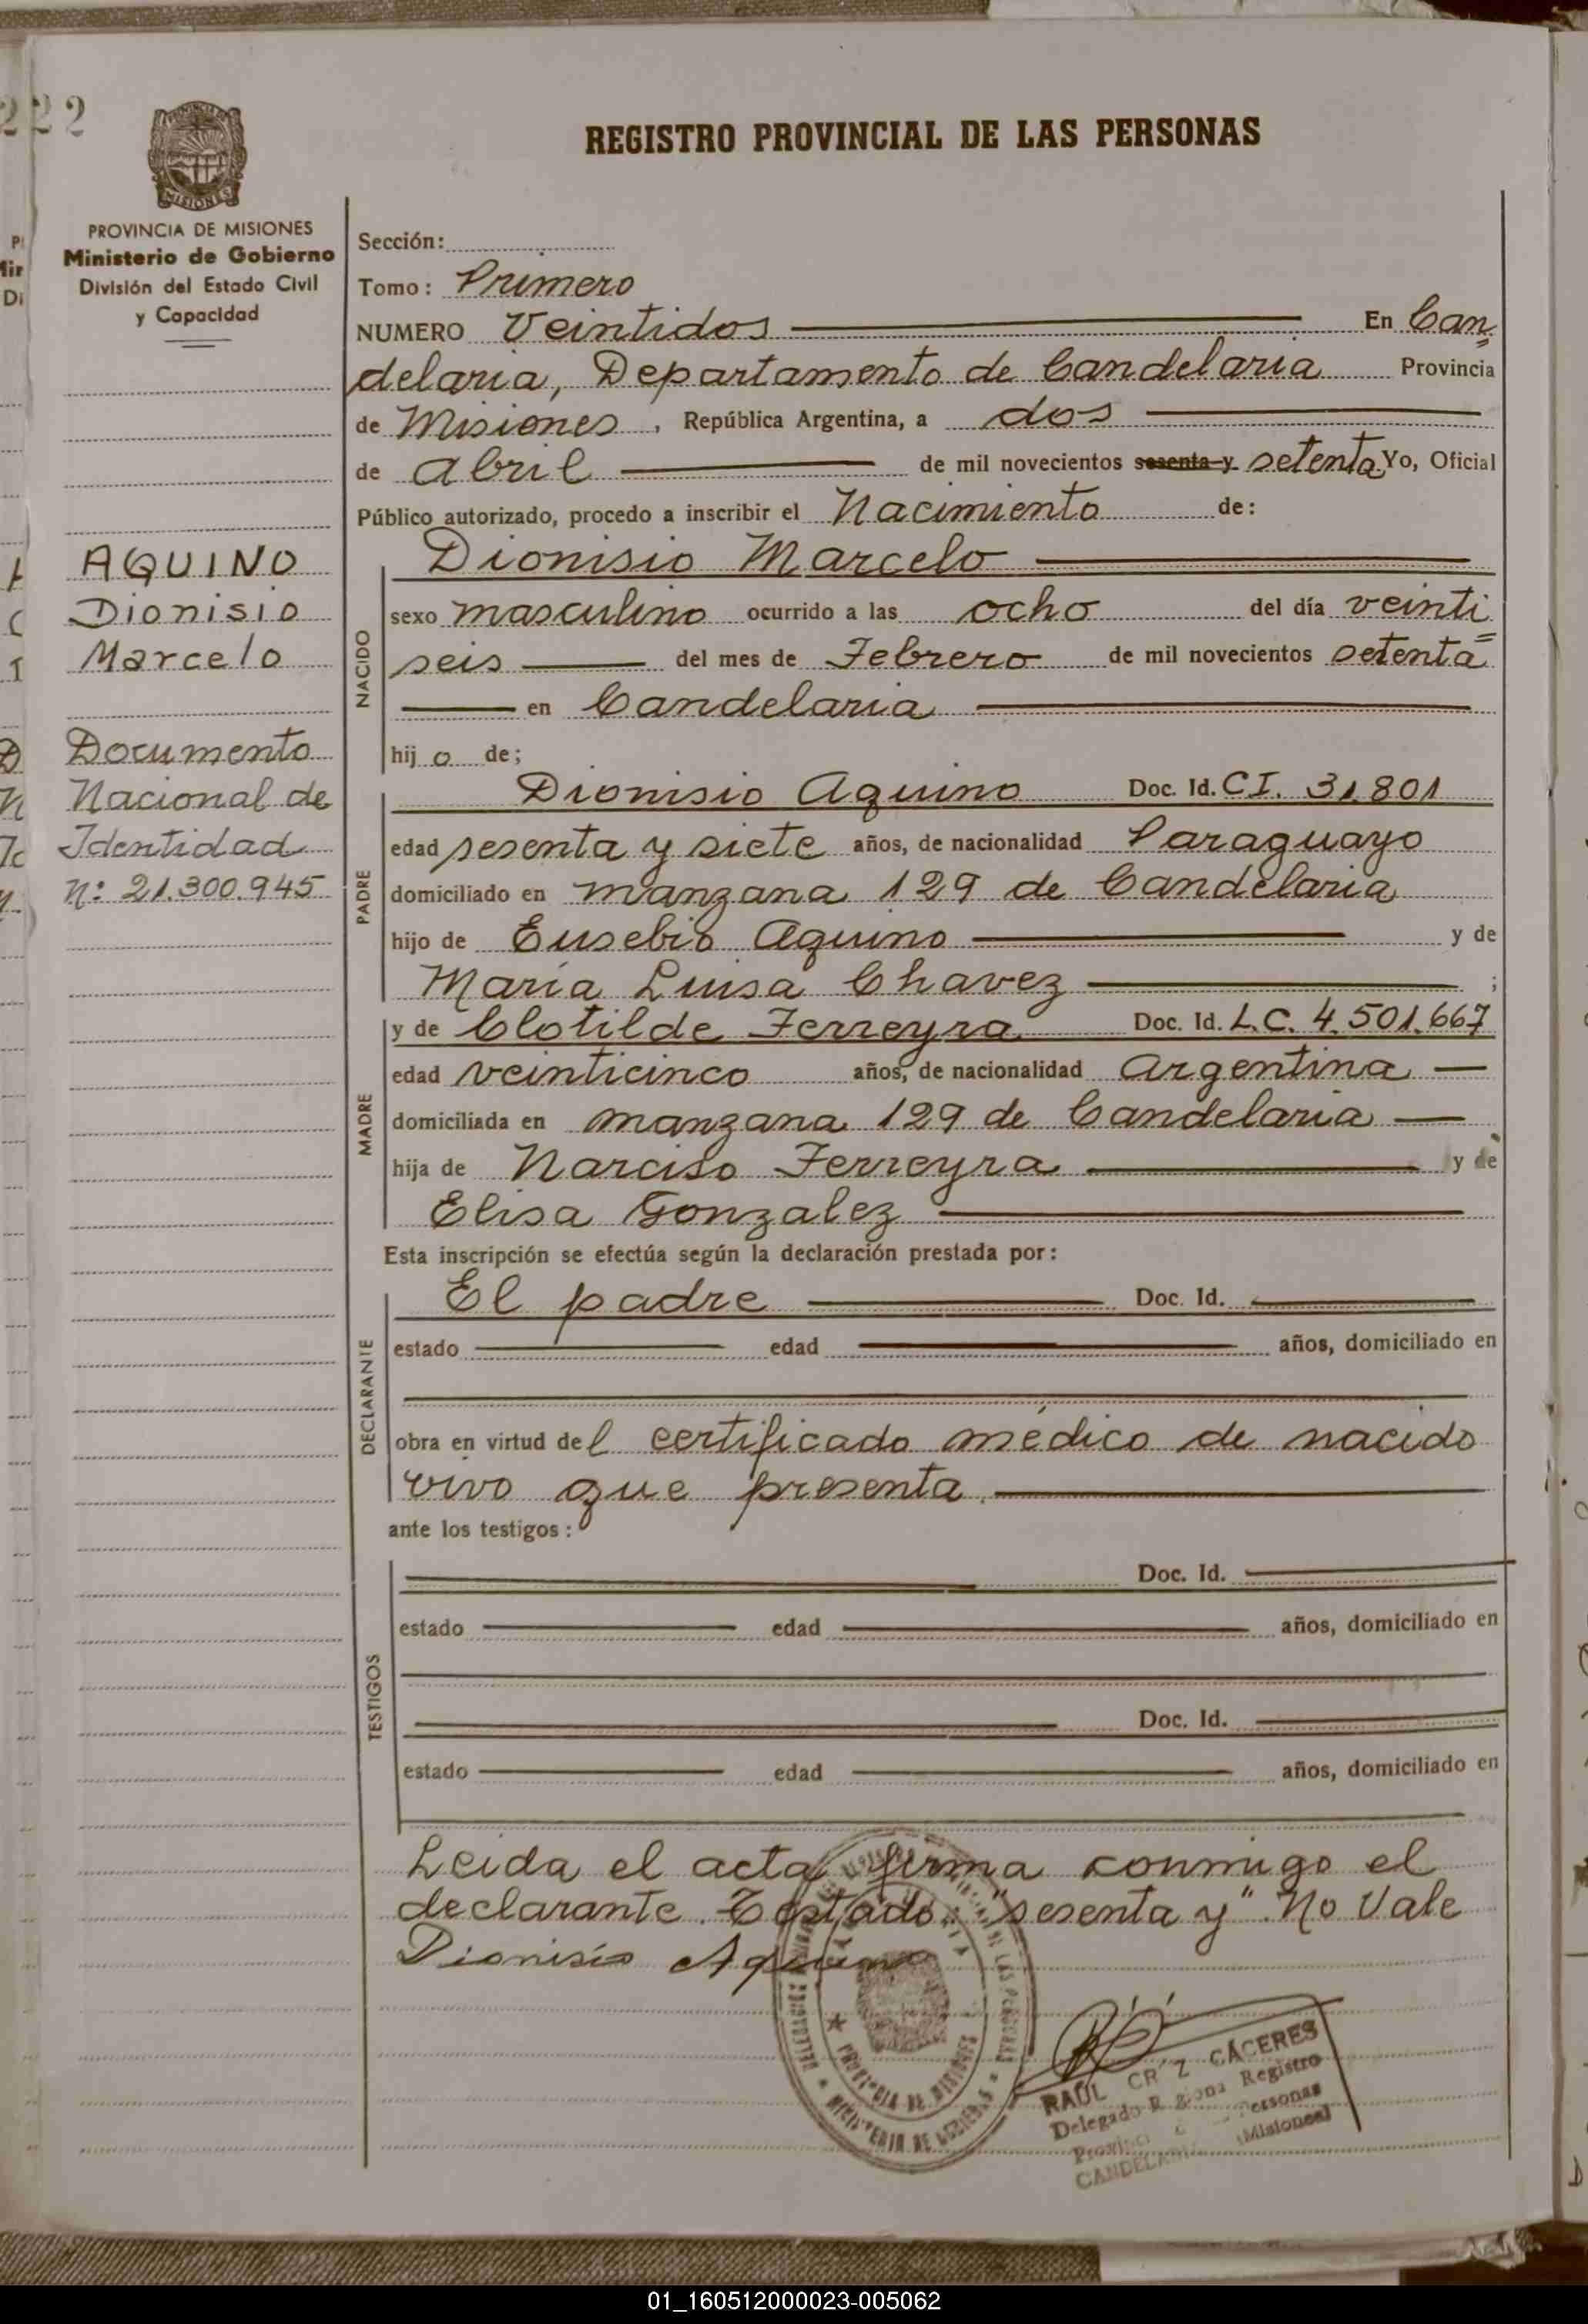 222
PROVINCIA DE MISIONES
Ministerio de Gobierno
División del Estado Civil
y Capacidad
AQUINO
Dionisio
Marcelo
Documento
Nacional de
Identidad
Nº: 21.300.945
REGISTRO PROVINCIAL DE LAS PERSONAS
Sección:
Tomo: Primero
NUMERO Veintidos En Can
delaria, Departamento de Candelaria Provincia
de Misiones, República Argentina, a dos
de abril de mil novecientos sesenta y setenta Yo, Oficial
Público autorizado, procedo a inscribir el Nacimiento de:
NACIDO
Dionisio Marcelo
sexo masculino ocurrido a las ocho del día veinti
seis del mes de Febrero de mil novecientos setenta
en Candelaria
hijo de;
PADRE
Dionisio Aquino Doc. Id. CI. 31.801
edad sesenta y siete años, de nacionalidad Paraguayo
domiciliado en manzana 129 de Candelaria
hijo de Eusebio Aquino y de
María Luisa Chavez ;
MADRE
y de Clotilde Ferreyra Doc. Id. L.C. 4.501.667
edad veinticinco años, de nacionalidad Argentina
domiciliada en manzana 129 de Candelaria
hija de Narciso Ferreyra y de
Elisa Gonzalez
Esta inscripción se efectúa según la declaración prestada por:
DECLARANTE
El padre Doc. Id.
estado edad años, domiciliado en
obra en virtud del certificado médico de nacido
vivo que presenta.
ante los testigos:
TESTIGOS
Doc. Id.
estado edad años, domiciliado en
Doc. Id.
estado edad años, domiciliado en
Leida el acta firma conmigo el
declarante. Testado: "sesenta y" No Vale
Dionisio Aquino
PROVINCIA DE MISIONES
MINISTERIO DE GOBIERNO
DE LAS PERSONAS
RAÚL CR Z CÁCERES
Delegado Registro
Personas
CANDELARIA (Misiones)
01_160512000023-005062